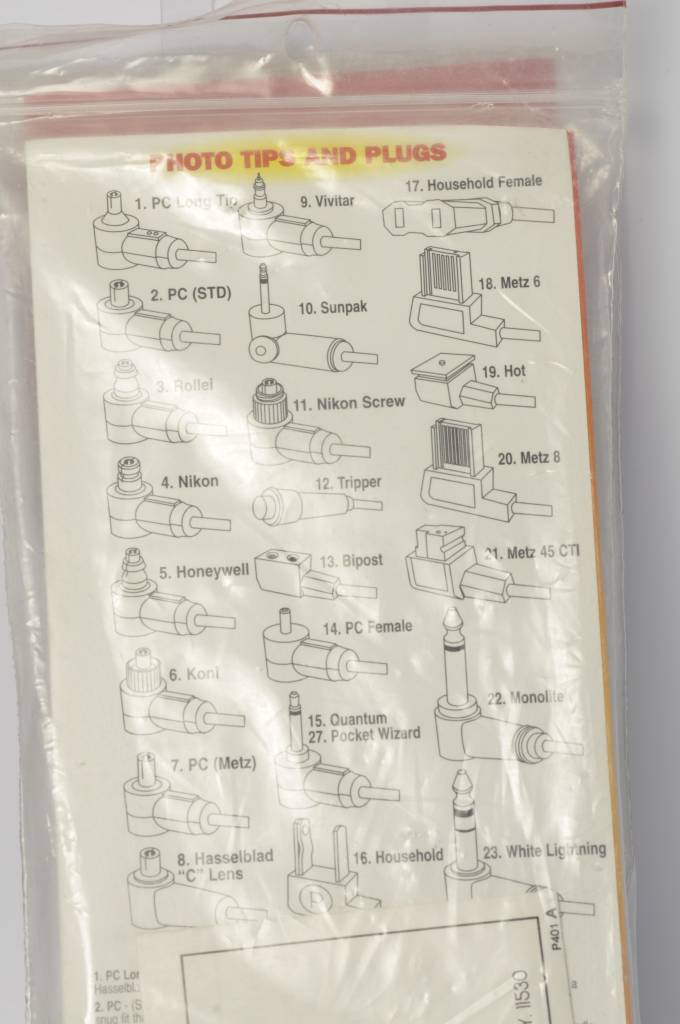 PHOTO TIPS AND PLUGS
1. PC Long Tip
2. PC (STD)
3. Rollei
4. Nikon
5. Honeywell
6. Koni
7. PC (Metz)
8. Hasselblad
"C" Lens
9. Vivitar
10. Sunpak
11. Nikon Screw
12. Tripper
13. Bipost
14. PC Female
15. Quantum
27. Pocket Wizard
16. Household
17. Household Female
18. Metz 6
19. Hot
20. Metz 8
21. Metz 45 CTI
22. Monolite
23. White Lightning
P
1. PC Lor
Hasselbl
2. PC - (S
snug fit th
Y. 11530
P401 A
a